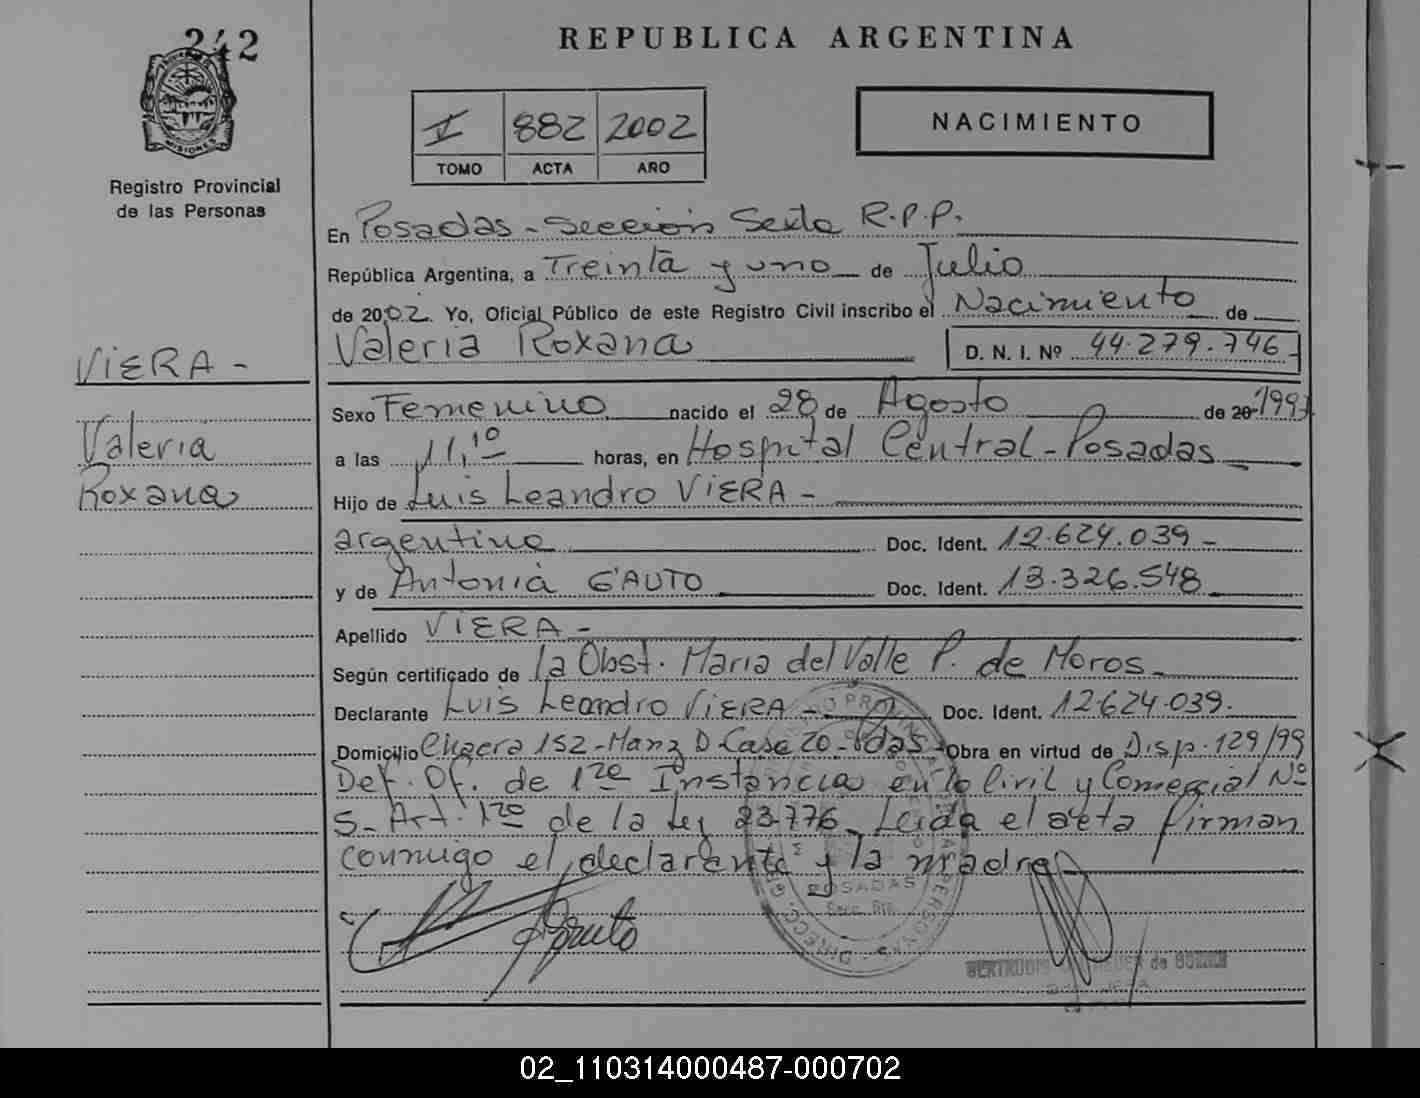 242
REPUBLICA ARGENTINA
I 882 2002
TOMO ACTA AÑO
NACIMIENTO
MISIONES
Registro Provincial
de las Personas
VIERA -
Valeria
Roxana
En Posadas - Sección Sexta R.P.P.
República Argentina, a Treinta y uno de Julio
de 2002. Yo, Oficial Público de este Registro Civil inscribo el Nacimiento de
Valeria Roxana D. N. I. Nº 44.279.746-
Sexo Femenino nacido el 28 de Agosto de 20 199
a las 11,10 horas, en Hospital Central - Posadas
Hijo de Luis Leandro VIERA -
argentino Doc. Ident. 12.624.039 -
y de Antonia GAUTO Doc. Ident. 13.326.548
Apellido VIERA -
Según certificado de la Obst. Maria del Valle P. de Moros -
Declarante Luis Leandro VIERA - Doc. Ident. 12624.039.
Domicilio 152 - Manz D - Casa 20 - Pdas - Obra en virtud de Disp. 129/99
Def. Of. de 1ra Instancia en lo Civil y Comercial Nº
5 - Art. 1ro de la Ley 23.776. Leida el acta firman
conmigo el declarante y la madre
Gauto
POSADAS
02_110314000487-000702